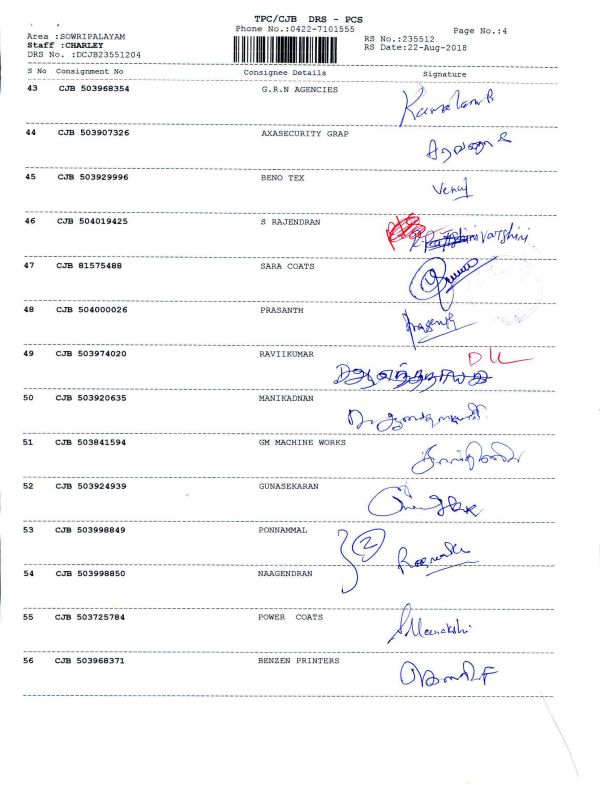 TPC/CJB DRS - PCS
Phone No.:0422-7101555
Page No.:4
Area :SOWRIPALAYAM
RS No.:235512
Staff :CHARLEY
RS Date:22-Aug-2018
DRS No. :DCJB23551204
S No Consignment No Consignee Details Signature
43 CJB 503968354 G.R.N AGENCIES
44 CJB 503907326 AXASECURITY GRAP
45 CJB 503929996 BENO TEX
46 CJB 504019425 S RAJENDRAN
47 CJB 81575488 SARA COATS
48 CJB 504000026 PRASANTH Prasanth
49 CJB 503974020 RAVIIKUMAR
50 CJB 503920635 MANIKADNAN
51 CJB 503841594 GM MACHINE WORKS
52 CJB 503924939 GUNASEKARAN
53 CJB 503998849 PONNAMMAL 2
54 CJB 503998850 NAAGENDRAN
55 CJB 503725784 POWER COATS S.Meenakshi
56 CJB 503968371 BENZEN PRINTERS